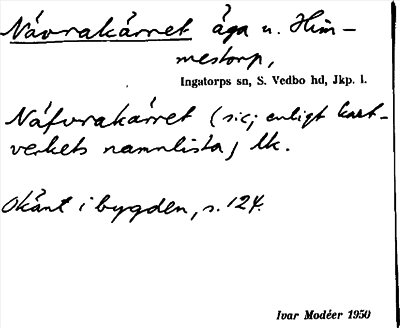 Návrakárret äga u. Him-
mestorp,
Ingatorps sn, S. Vedbo hd, Jkp. l.
Náfvrakárret (sic; enligt kart-
verkets namnlista) lk.
Okänt i bygden, s. 124.
Ivar Modéer 1950